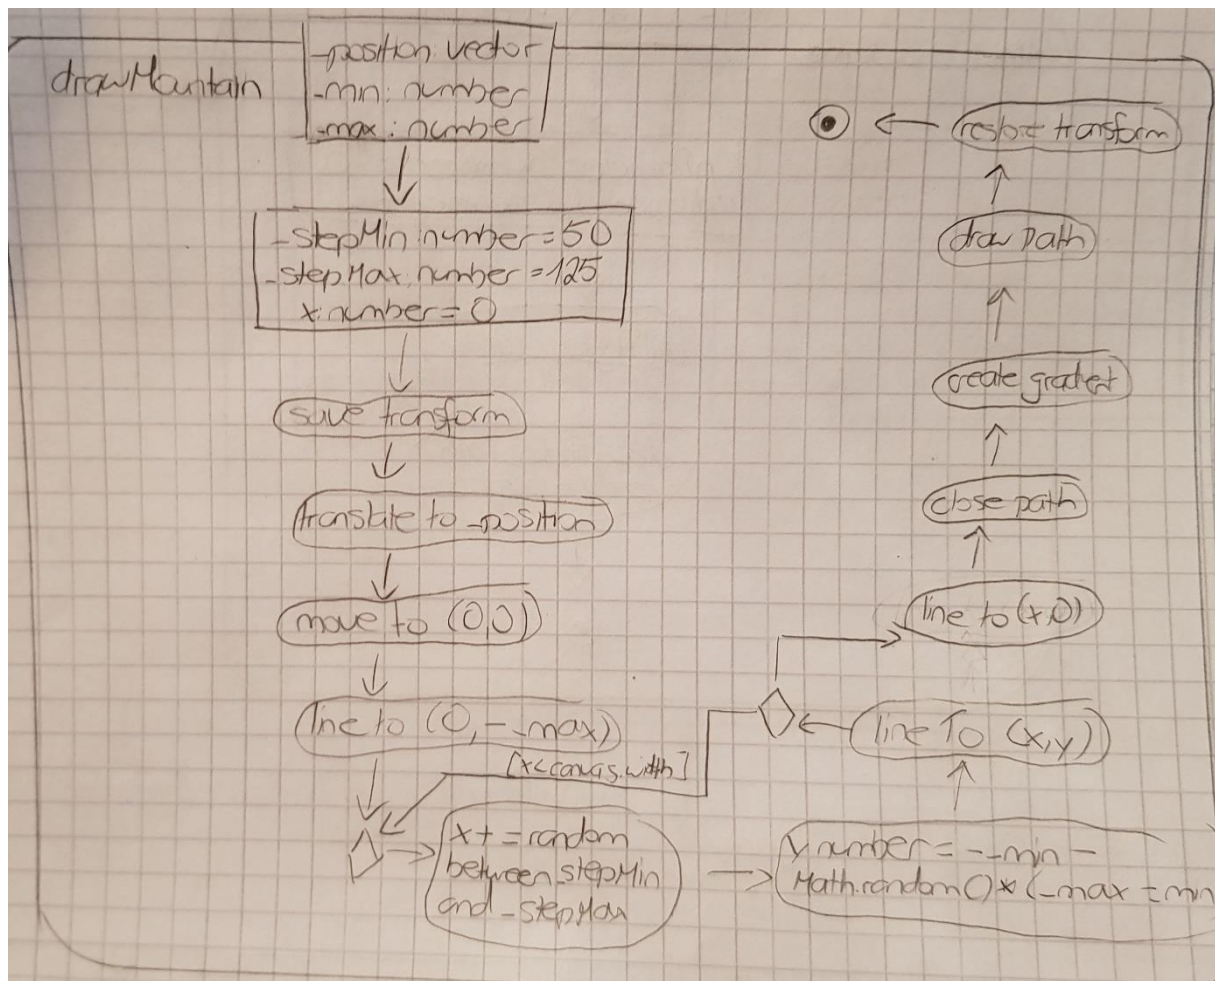 drawMountain
_position: vector
_min: number
_max: number
_stepMin: number = 50
_stepMax: number = 125
x: number = 0
save transform
translate to _position
move to (0,0)
line to (0, -_max)
[x < canvas.width]
x += random
between _stepMin
and _stepMax
y number = -_min -
Math.random() * (_max - _min
line To (x,y)
line to (x,0)
close path
create gradient
draw path
restore transform